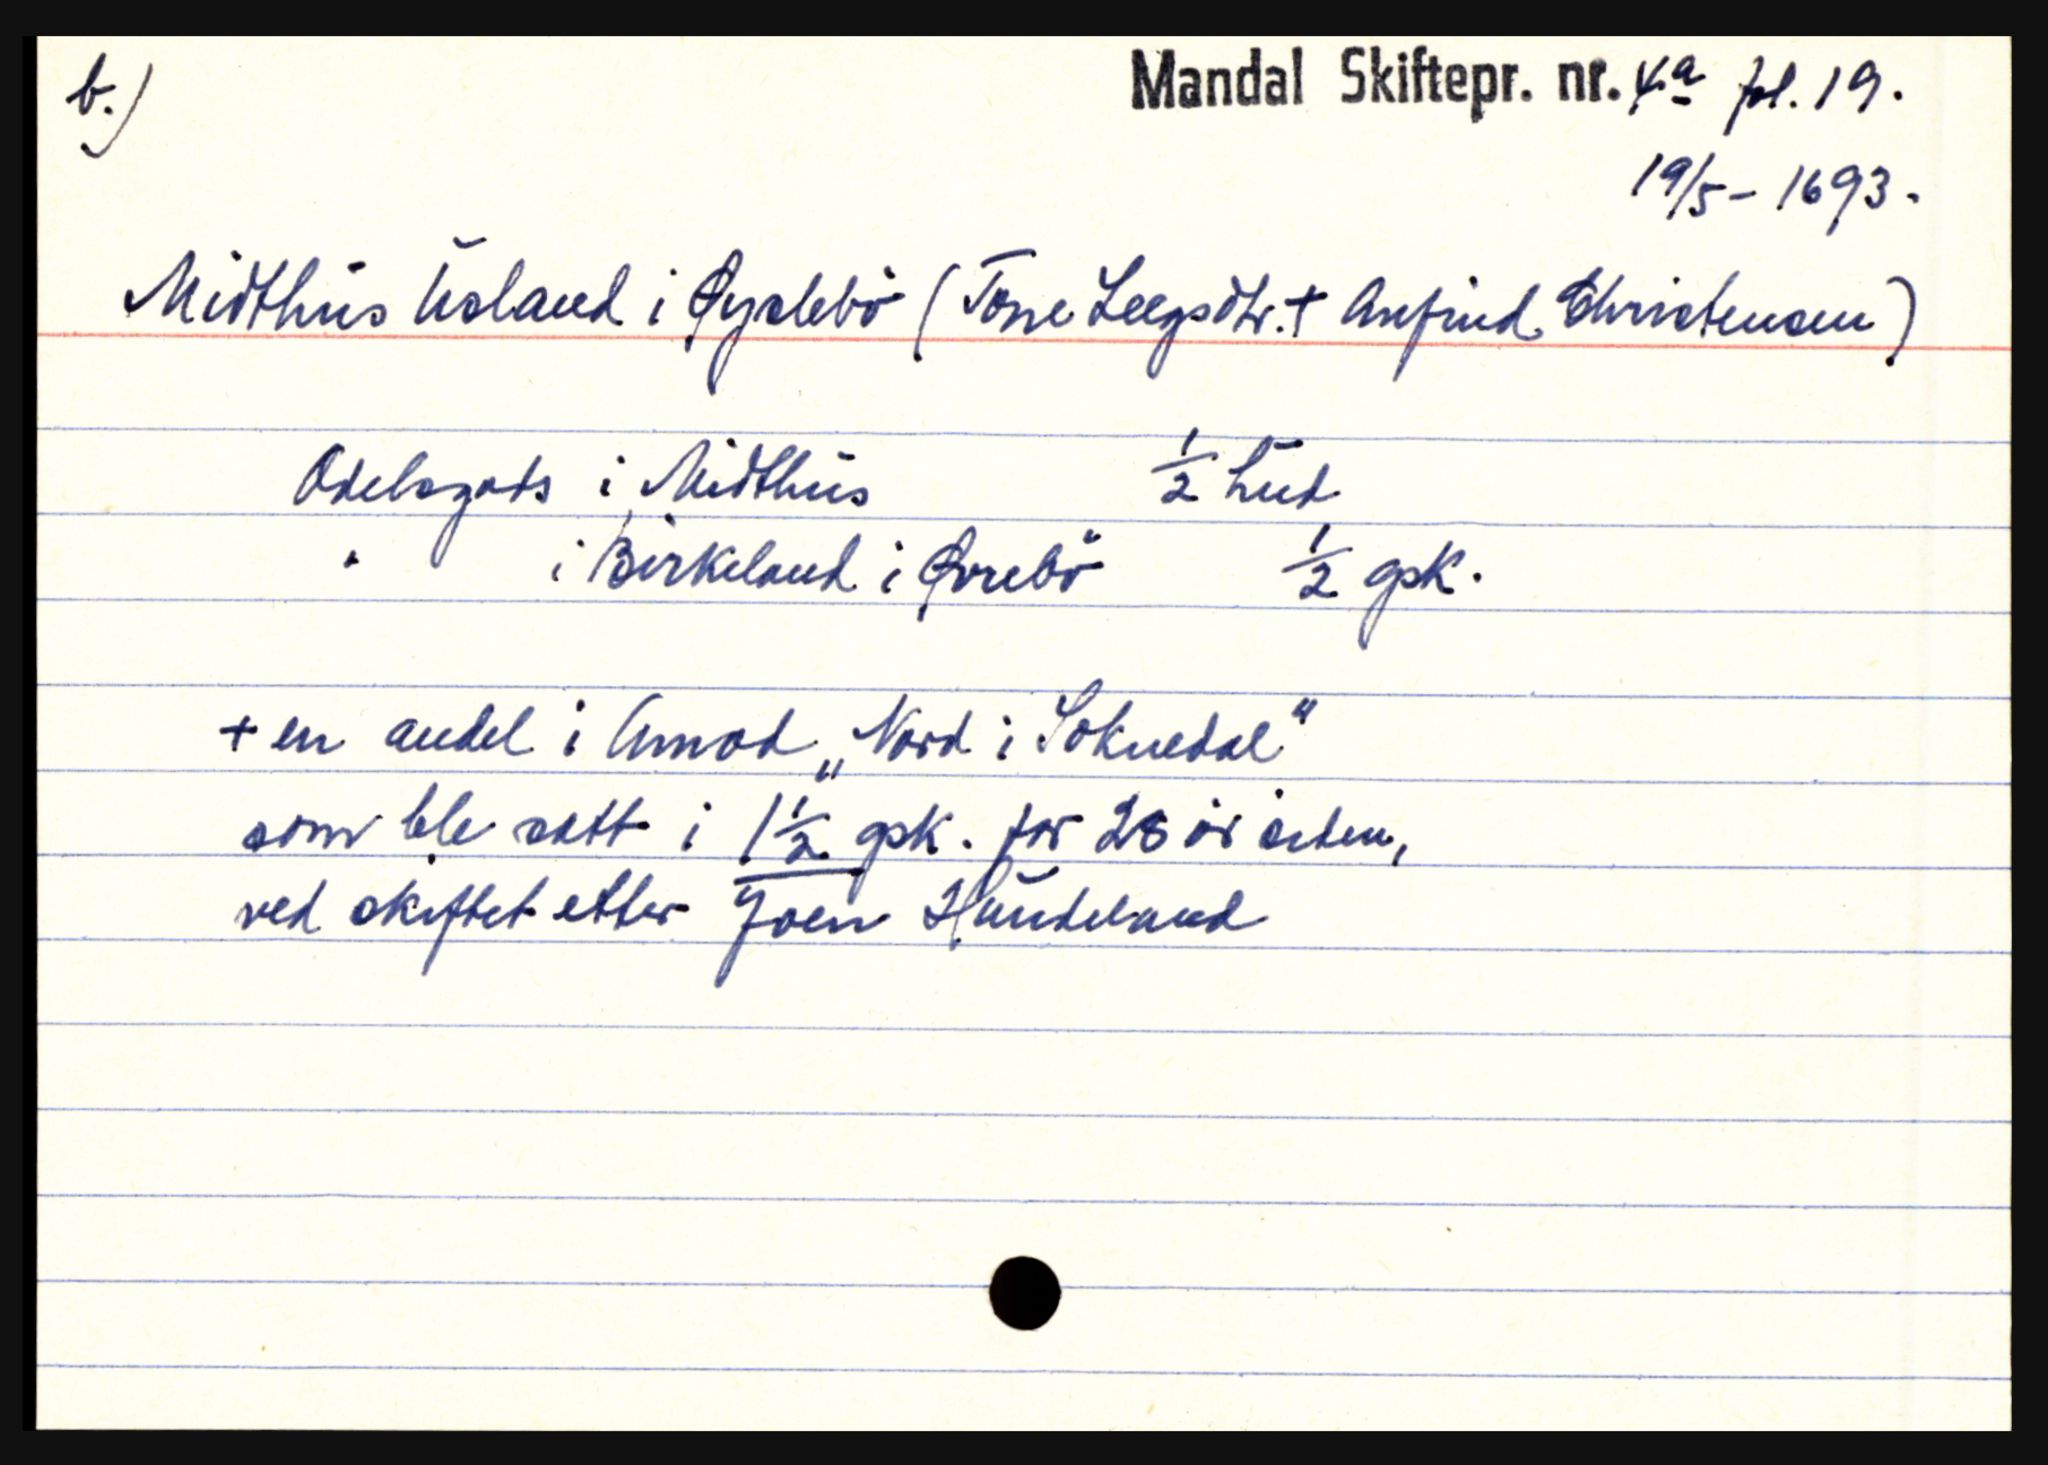 b.)
Mandal Skiftepr. nr. 4a fol. 19.
19/5 - 1693.
Midthus Usland i Øyslebö (Tone Leegsdtr. + Anfind Christensen)
Odelsgods i Midthus 1/2 hud
" i Birkeland i Øvrebö 1/2 gsk.
+ en andel i Amod „Nord i Soknedal"
som ble satt i 1 1/2 gsk. for 28 år siden,
ved skiftet etter Joen Haudeland